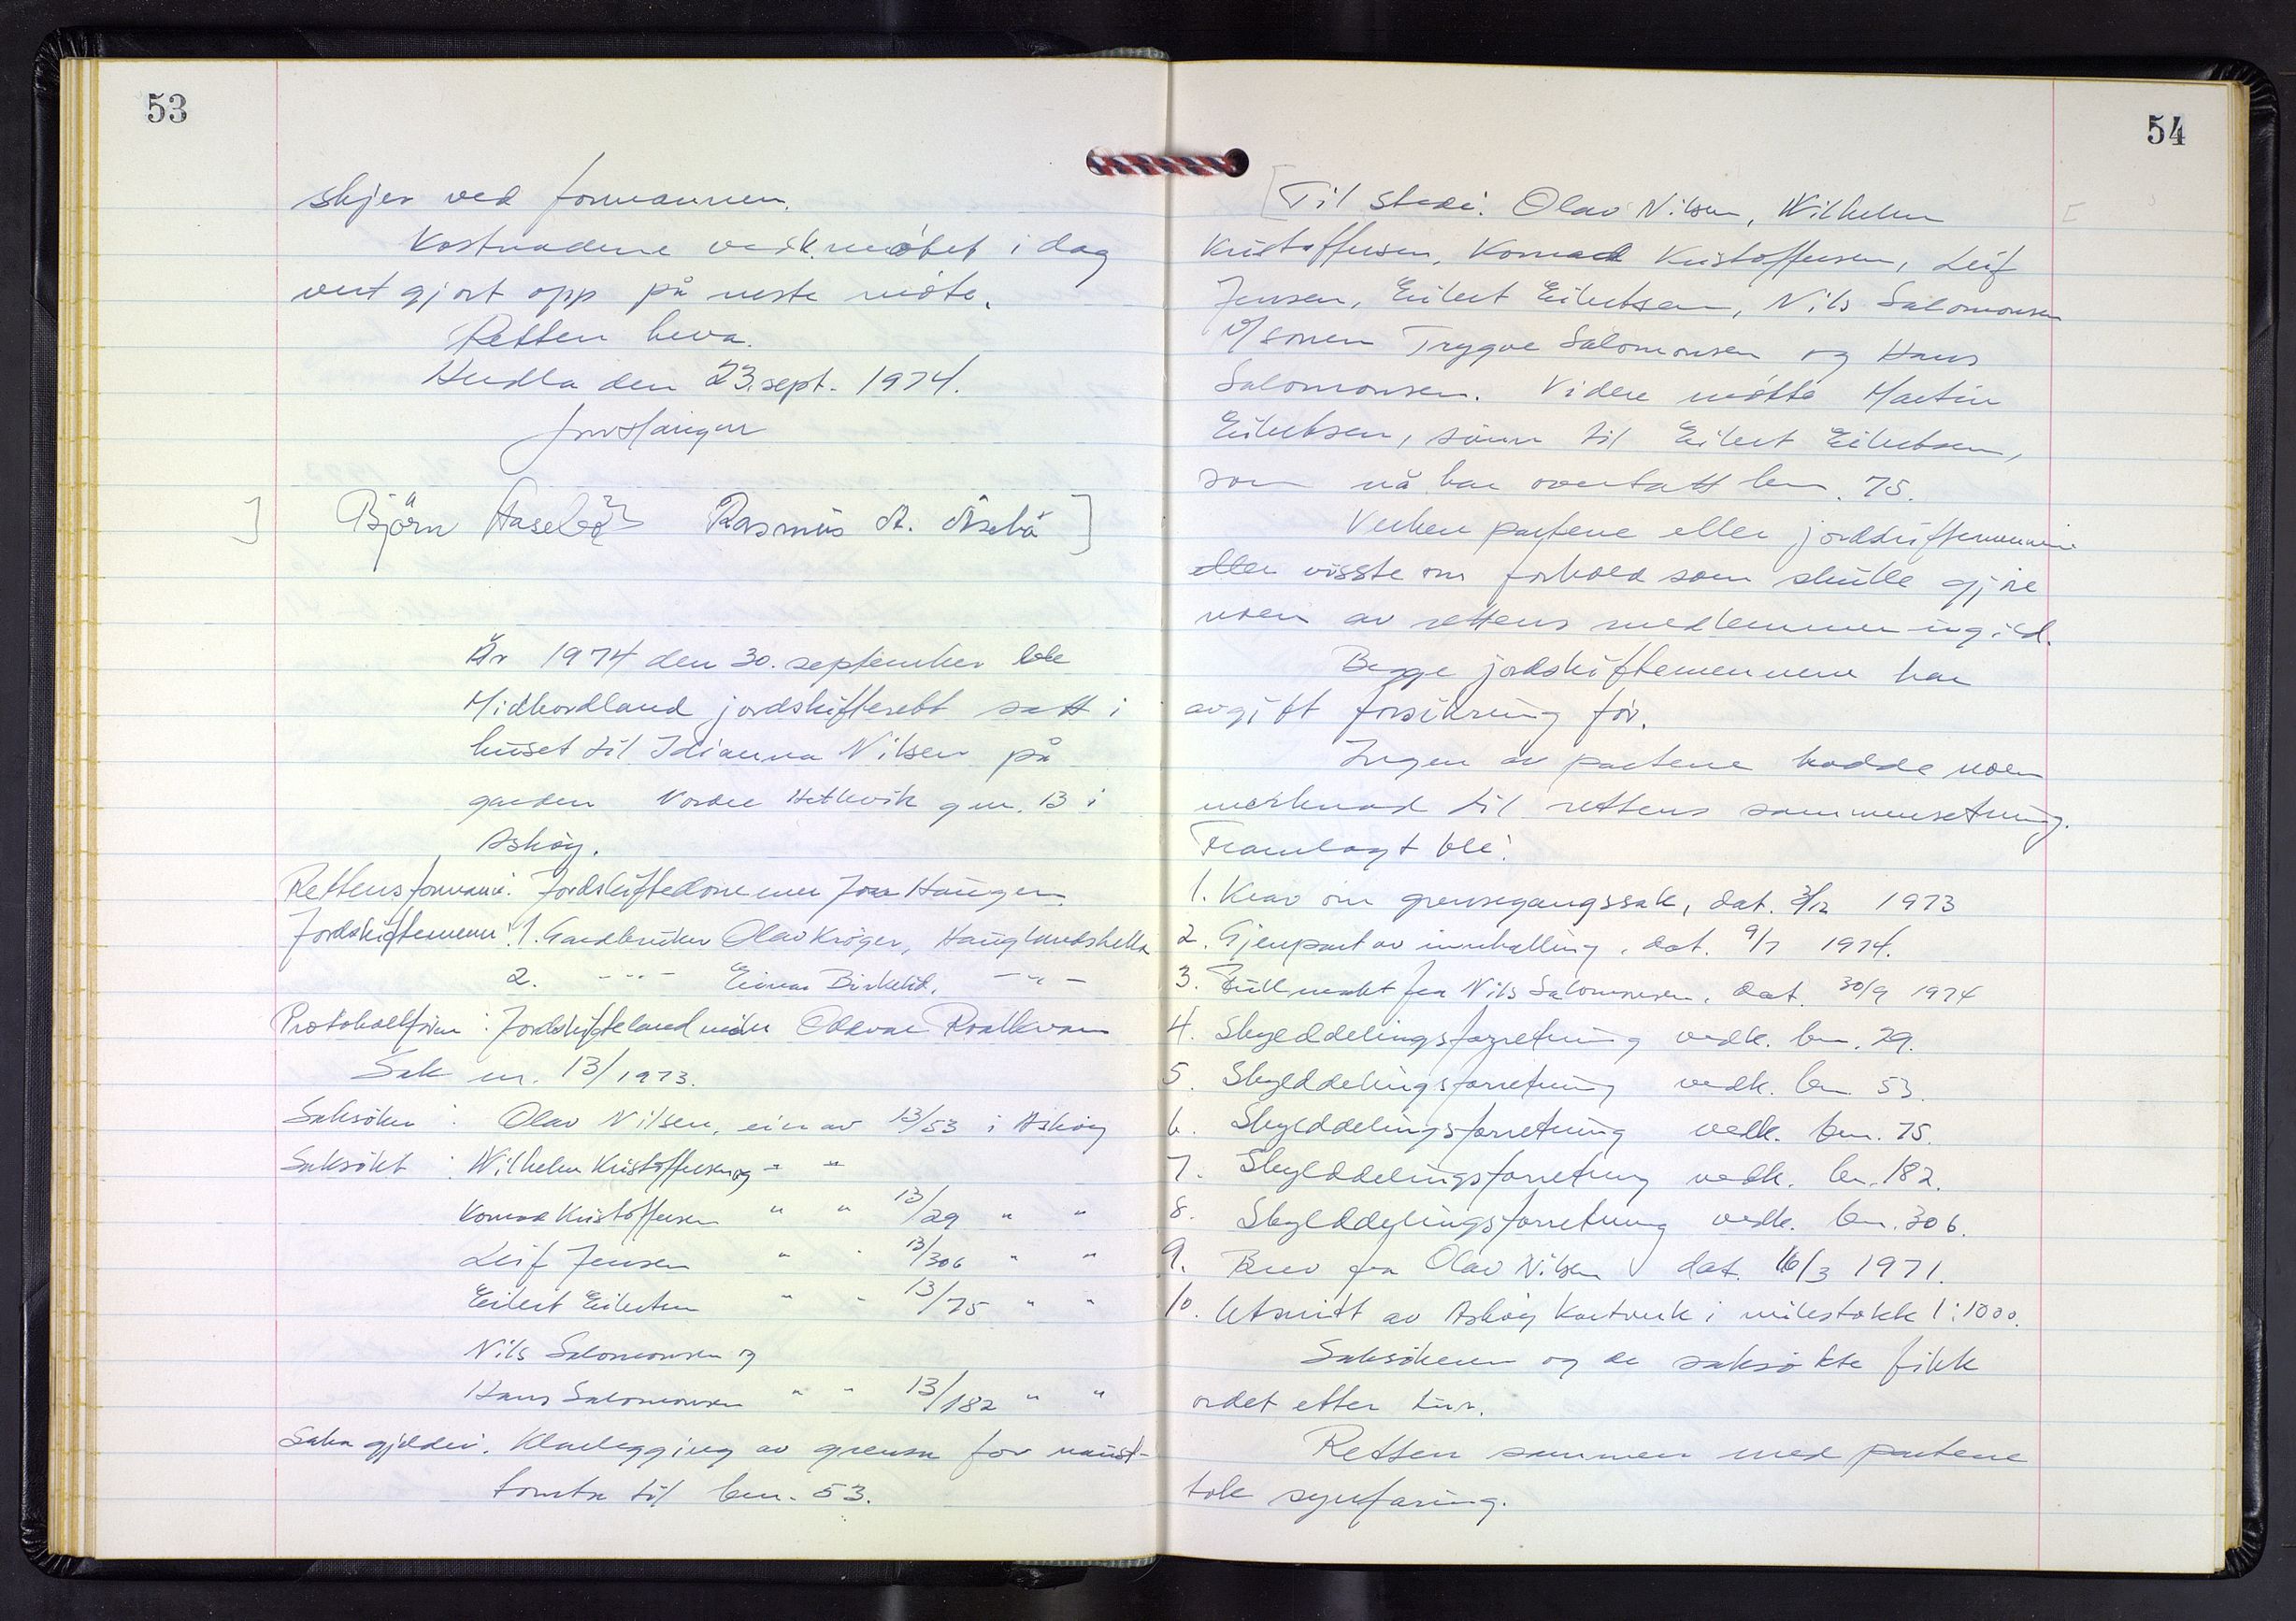 53
skjer ved formannen.
Kostnadene vedk. møtet i dag
vert gjort opp på neste møte.
Retten heva.
Herdla den 23. sept. 1974.
Jon Haugen
Björn Rasmus A.
År 1974 den 30. september ble
Midhordland jordskifterett satt i
huset til Idianna Nilsen på
garden Nordre Hetlevik gnr. 13 i
Askøy.
Rettens formann: Jordskiftedommer Jon Haugen.
Jordskiftemenn: 1. Gardbruker Olav Krøger, Hauglandshella
2. -"- Einar Birkelid, -"-
Protokollfører: Jordskiftelandmåler Oddvar
Sak nr. 13/1973.
Saksøker: Olav Nilsen, eier av 13/53 i Askøy
Saksøkt: Wilhelm Kristoffersen og " "
Konrad Kristoffersen " " 13/29 " "
Leif Jensen " " 13/306 " "
Eilert Eilertsen " " 13/75 " "
Nils Salomonsen og
Hans Salomonsen " " 13/182 " "
Saka gjelder: Klarlegging av grensa for naust-
tomta til bnr. 53.
54
Til stede: Olav Nilsen, Wilhelm
Kristoffersen, Konrad Kristoffersen, Leif
Jensen, Eilert Eilertsen, Nils Salomonsen
v/sønen Trygve Salomonsen og Hans
Salomonsen. Videre møtte Martin
Eilertsen, sønn til Eilert Eilertsen,
som nå har overtatt bnr. 75.
Verken partene eller jordskiftemennene
eller visste om forhold som skulle gjøre
noen av rettens medlemmer ugild.
Begge jordskiftemennene har
avgitt forsikring før.
Ingen av partene hadde noen
merknad til rettens sammensetning.
Framlagt ble:
1. Krav om grensegangssak, dat. 3/12 1973
2. Gjenpart av innkalling, dat. 9/7 1974.
3. Fullmakt fra Nils Salomonsen, dat. 30/9 1974
4. Skylddelingsforretning vedk. bnr. 29.
5. Skylddelingsforretning vedk. bnr. 53.
6. Skylddelingsforretning vedk. bnr. 75.
7. Skylddelingsforretning vedk. bnr. 182.
8. Skylddelingsforretning vedk. bnr. 306.
9. Brev fra Olav Nilsen dat. 16/3 1971.
10. Utsnitt av Askøy kartverk i målestokk 1:1000.
Saksøkeren og de saksøkte fikk
ordet etter tur.
Retten sammen med partene
tok synfaring.